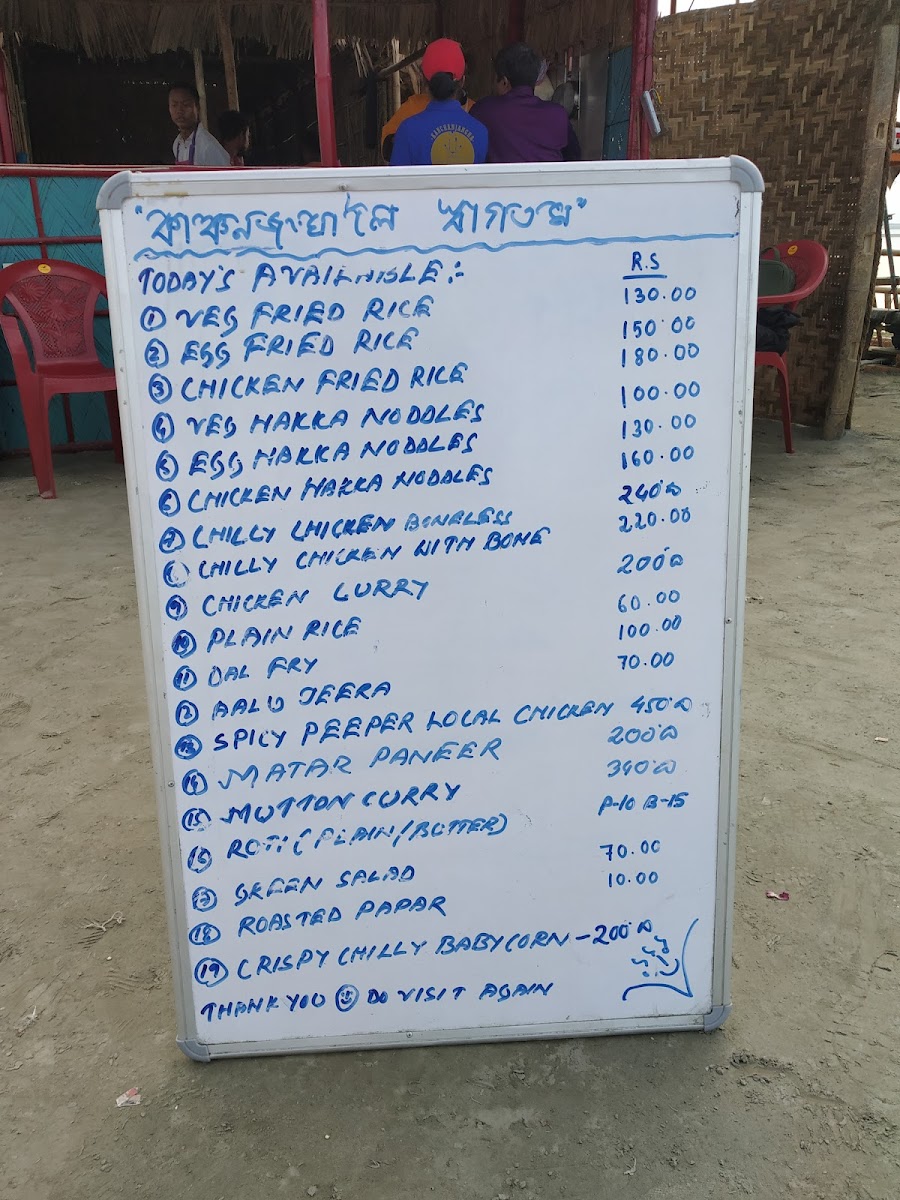 "কাঞ্চনজংঘা'লৈ স্বাগতম"
TODAY'S AVAILABLE :- R.S
① VEG FRIED RICE 130.00
② EGG FRIED RICE 150.00
③ CHICKEN FRIED RICE 180.00
④ VEG HAKKA NODDLES 100.00
⑤ EGG HAKKA NODDLES 130.00
⑥ CHICKEN HAKKA NODDLES 160.00
⑦ CHILLY CHICKEN BONELESS 240.00
⑧ CHILLY CHICKEN WITH BONE 220.00
⑨ CHICKEN CURRY 200.00
⑩ PLAIN RICE 60.00
⑪ DAL FRY 100.00
⑫ AALU JEERA 70.00
⑬ SPICY PEEPER LOCAL CHICKEN 450.00
⑭ MATAR PANEER 200.00
⑮ MUTTON CURRY 340.00
⑯ ROTI (PLAIN/BUTTER) P-10 B-15
⑰ GREEN SALAD 70.00
⑱ ROASTED PAPAR 10.00
⑲ CRISPY CHILLY BABYCORN - 200.00
THANK YOU ☺ DO VISIT AGAIN
KANCHANJANGHA